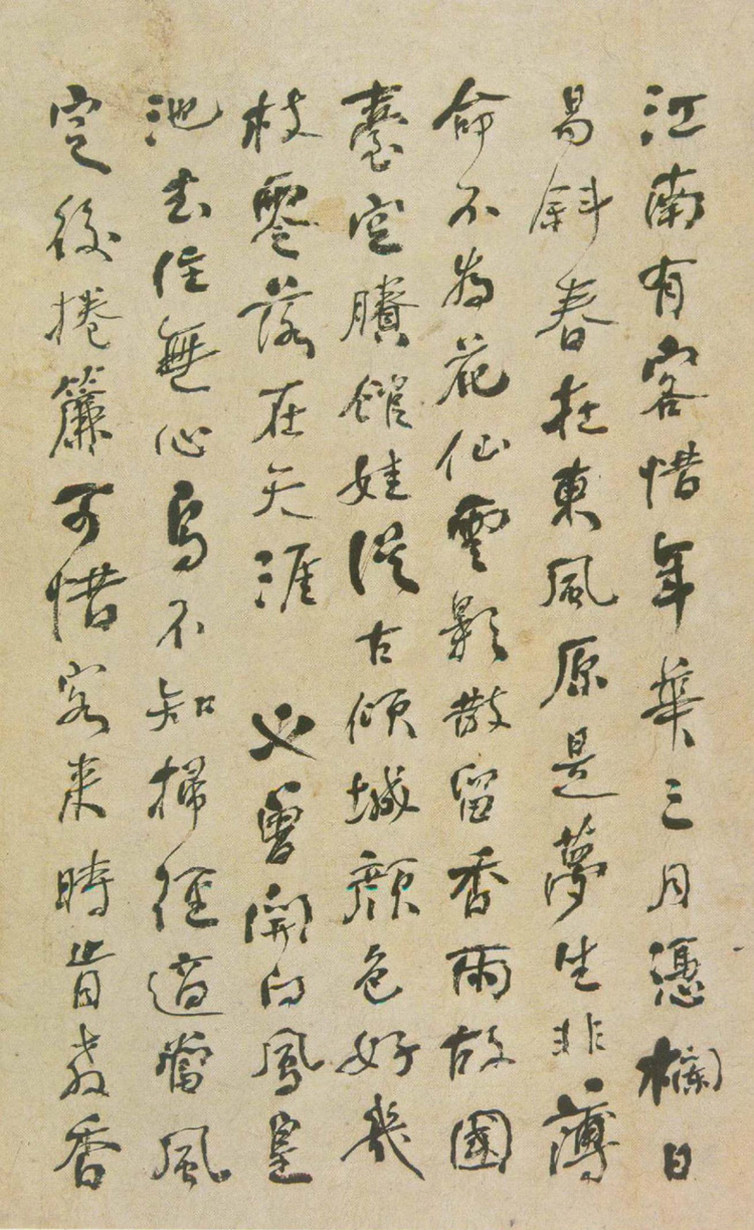 江南有客惜年華三月憑欄日
易斜春在東風原是夢生非薄
命不為花仙雲影散留香雨故國
臺空賸館娃從古傾城顏色好幾
枝零落在天涯 也曾開向鳳皇
池去住無心鳥不知掃徑適當風
定後捲簾可惜客來時肯教香